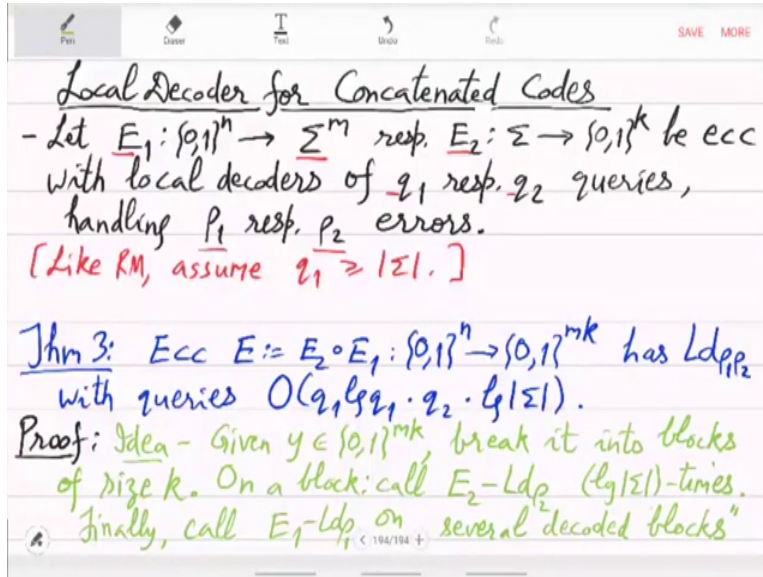 Pen Eraser Text Undo Redo SAVE MORE
Local Decoder for Concatenated Codes
- Let E₁ : {0,1}ⁿ → Σᵐ resp. E₂ : Σ → {0,1}ᵏ be ecc
with local decoders of q₁ resp. q₂ queries,
handling ρ₁ resp. ρ₂ errors.
[Like RM, assume q₁ ≥ |Σ|.]
Thm 3: Ecc E := E₂∘E₁ : {0,1}ⁿ → {0,1}ᵐᵏ has Ldρ₁ρ₂
with queries O(q₁lgq₁ · q₂ · lg|Σ|).
Proof: Idea - Given y ∈ {0,1}ᵐᵏ, break it into blocks
of size k. On a block: call E₂-Ldρ₂ (lg|Σ|)-times.
Finally, call E₁-Ldρ₁ on several decoded blocks"
< 194/194 +